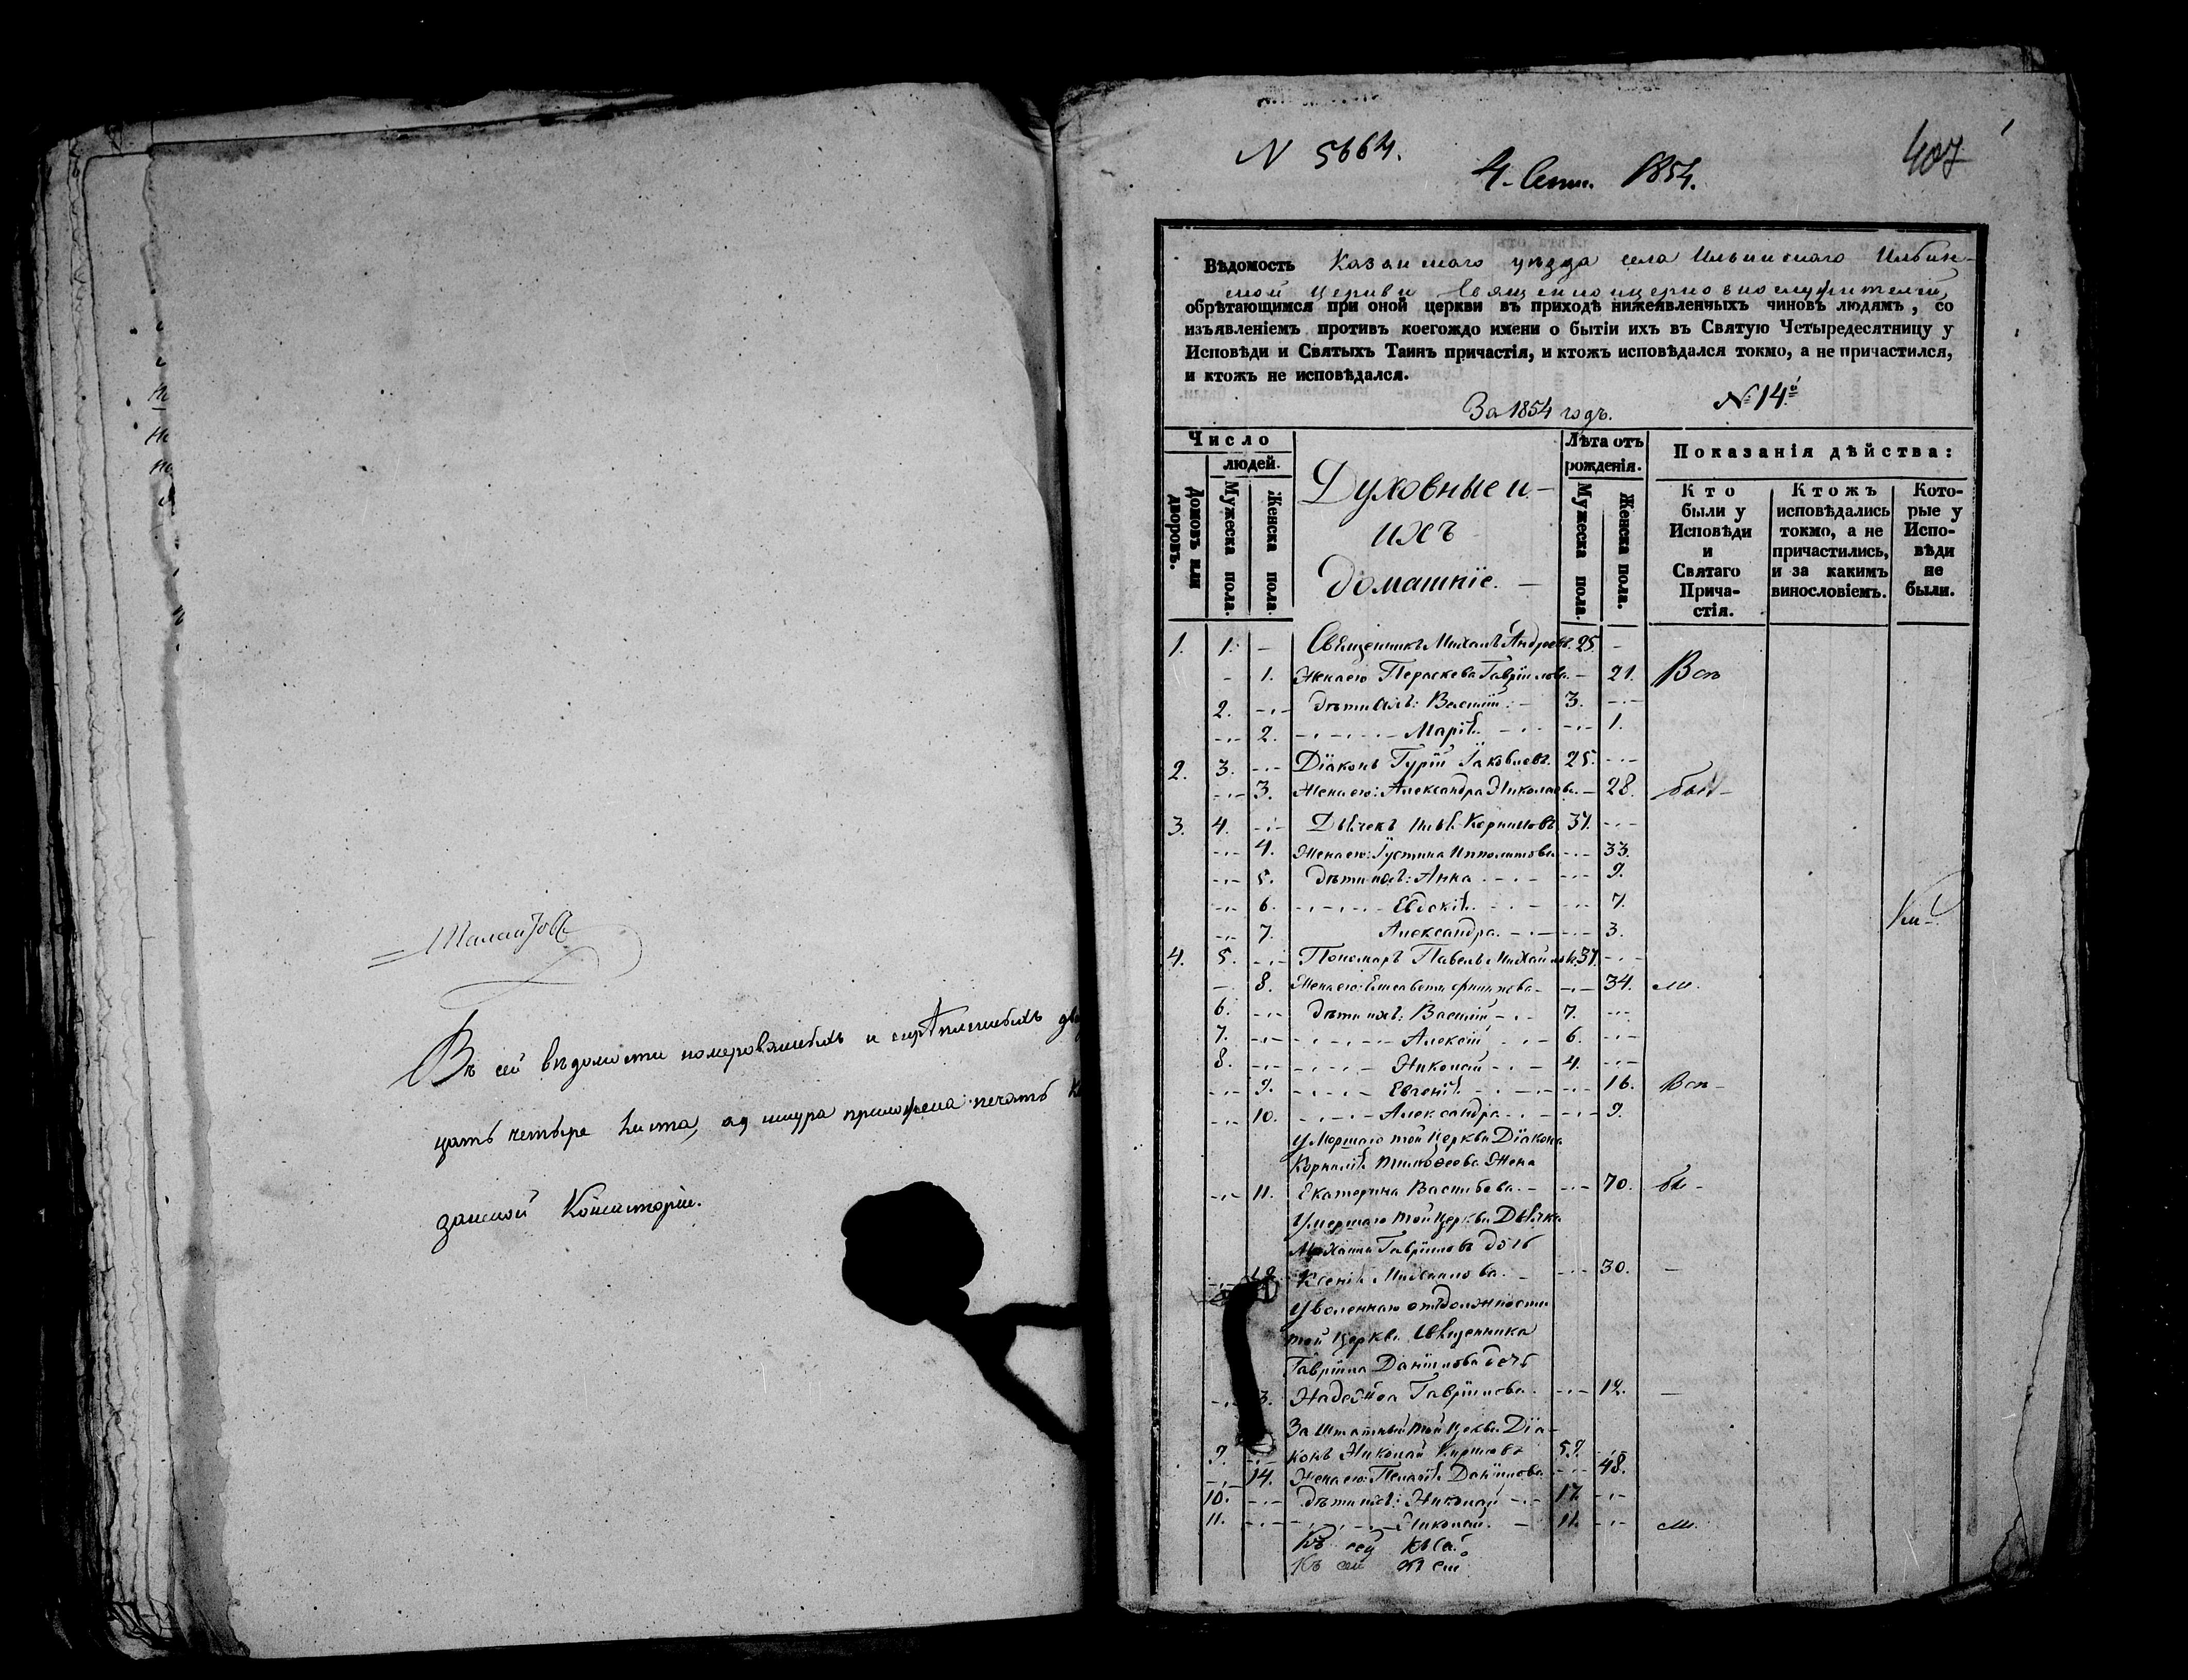 Шалаитовъ
Въ сей вѣдомости номерованныхъ и скрѣпленныхъ два
цать четыре листа, ад шнура приложена печать Ка
занской Консисторіи.
N 5664.
4. Сент. 1854.
407
Вѣдомость Казанскаго уѣзда села Ильинскаго Ильин-
ской церкви Священноцерковнослужителей,
обрѣтающимся при оной церкви въ приходѣ нижеявленныхъ чиновъ людямъ, со
изъявленіемъ противъ коегождо имени о бытіи ихъ въ Святую Четыредесятницу у
Исповѣди и Святыхъ Таинъ причастія, и ктожъ исповѣдался токмо, а не причастился,
и ктожъ не исповѣдался.
За 1854 годъ. № 14й
Число
людей.
Домовъ или дворовъ.
Мужеска пола.
Женска пола.
Духовные и
ихъ
домашніе.
Лѣта отъ
рожденія.
Мужеска пола.
Женска пола.
Показанія дѣйства:
Кто
были у
Исповѣди
и
Святаго
Прича-
стія.
Ктожъ
исповѣдались
токмо, а не
причастились,
и за какимъ
винословіемъ.
Кото-
рые у
Испо-
вѣди
не
были.
1. 1. - Священникъ Михаилъ Андреевъ. 25. -
- 1. Жена его Пераскева Гавріилова - 21. Всѣ
2. - дѣти ихъ: Василій 3. -
- 2. Марія - 1.
2. 3. - Діаконъ Гурій Іаковлевъ. 25. -
- 3. Жена его: Александра Николаева. - 28. был-
3. 4. - Дьячекъ Илья Корниловъ 37. -
- 4. Жена его: Іустина Ипполитова - 33.
- 5. дѣти ихъ: Анна - 9.
- 6. Евдокія - 7.
- 7. Александра - 3.
4. 5. - Пономарь Павелъ Михайловъ 37. -
- 8. Жена его: Елисавета Филиппова - 34. ли.
6. - дѣти ихъ: Василій - 7. -
7. - Алексій - 6. -
8. - Николай - 4. -
- 9. Евгенія - 16. Всѣ -
- 10. Александра - 9.
Умершаго той Церкви Діакона
Корнилія Тимофеева Жена
- 11. Екатерина Васильева. - 70. бы -
Умершаго той Церкви Дьячка
Михаила Гавріилова дочь
- 12. Ксенія Михаилова. - 30. -
Уволеннаго от должности
той Церкви Священника
Гавріила Даніилова дочь
- 3. Надежда Гавріилова - 12. -
Заштатный той Церкви Діа-
9. - конъ Николай Кириловъ 59. -
- 14. Жена его: Пелагія Даніилова - 48.
10. - дѣти ихъ: Николай - 17. -
11. - Николай. - 11. - ли.